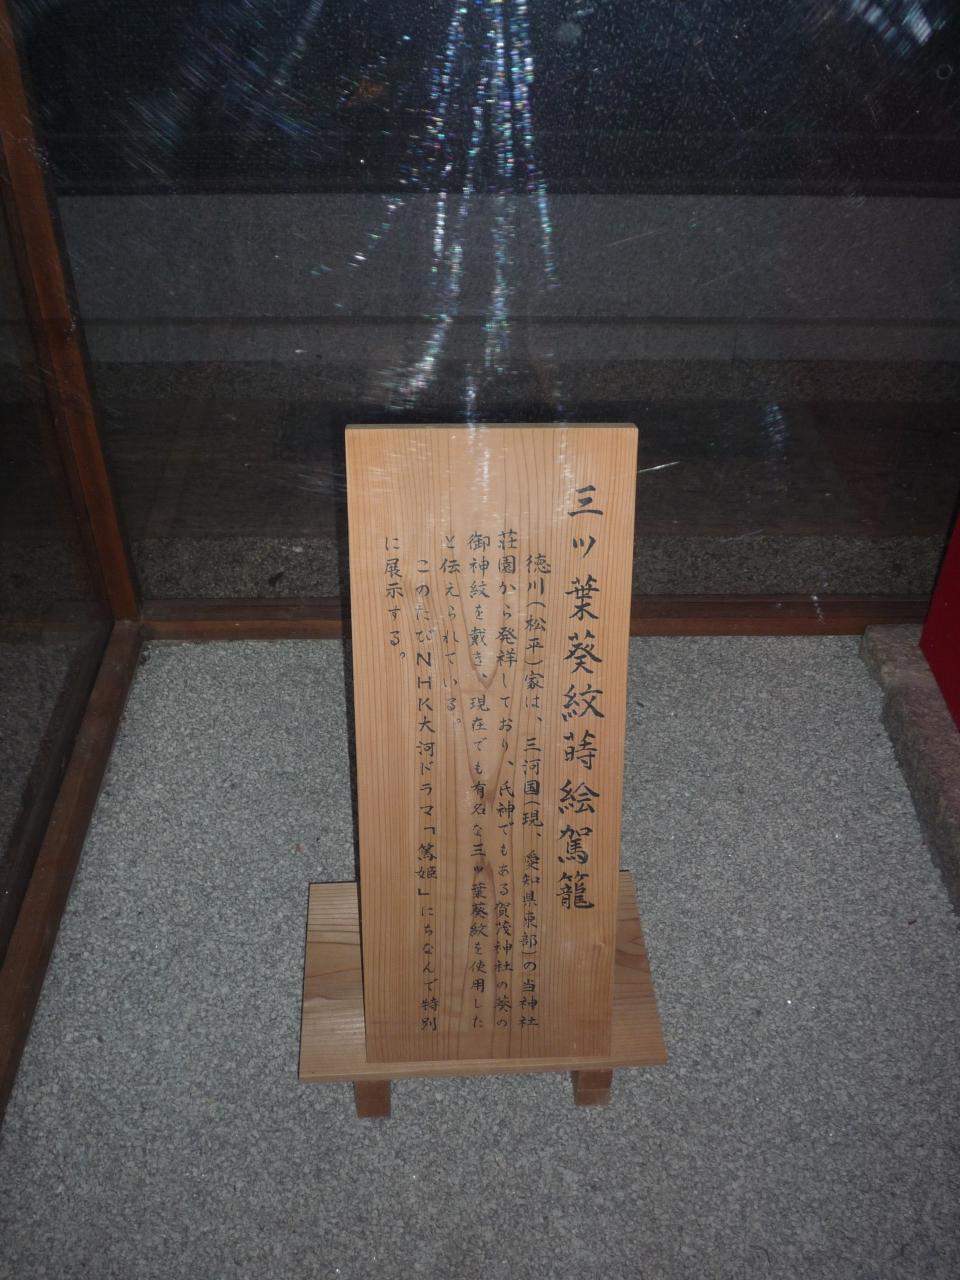 三ツ葉葵紋蒔絵駕籠
徳川(松平)家は、三河国(現、愛知県東部)の当神社
荘園から発祥しており、氏神でもある賀茂神社の葵の
御神紋を戴き、現在でも有名な三ッ葉葵紋を使用した
と伝えられている。
このたびNHK大河ドラマ「篤姫」にちなんで特別
に展示する。